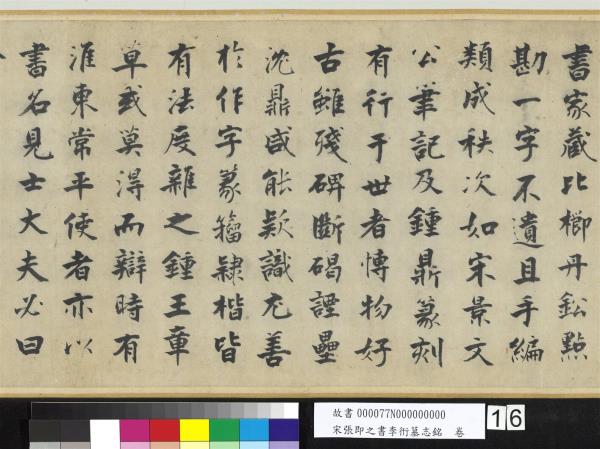 書家藏比櫛丹鈆點
勘一字不遺且手編
類成秩次如宋景文
公筆記及鍾鼎篆刻
有行于世者博物好
古雖殘碑斷碣譚罍
沈鼎咸能疑識尤善
於作字篆籀隸楷皆
有法度雜之鍾王章
草或莫淂而辯時有
淮東常平使者亦以
書名見士大夫必曰
故書 000077N000000000
宋張即之書李衎墓志銘 卷
16